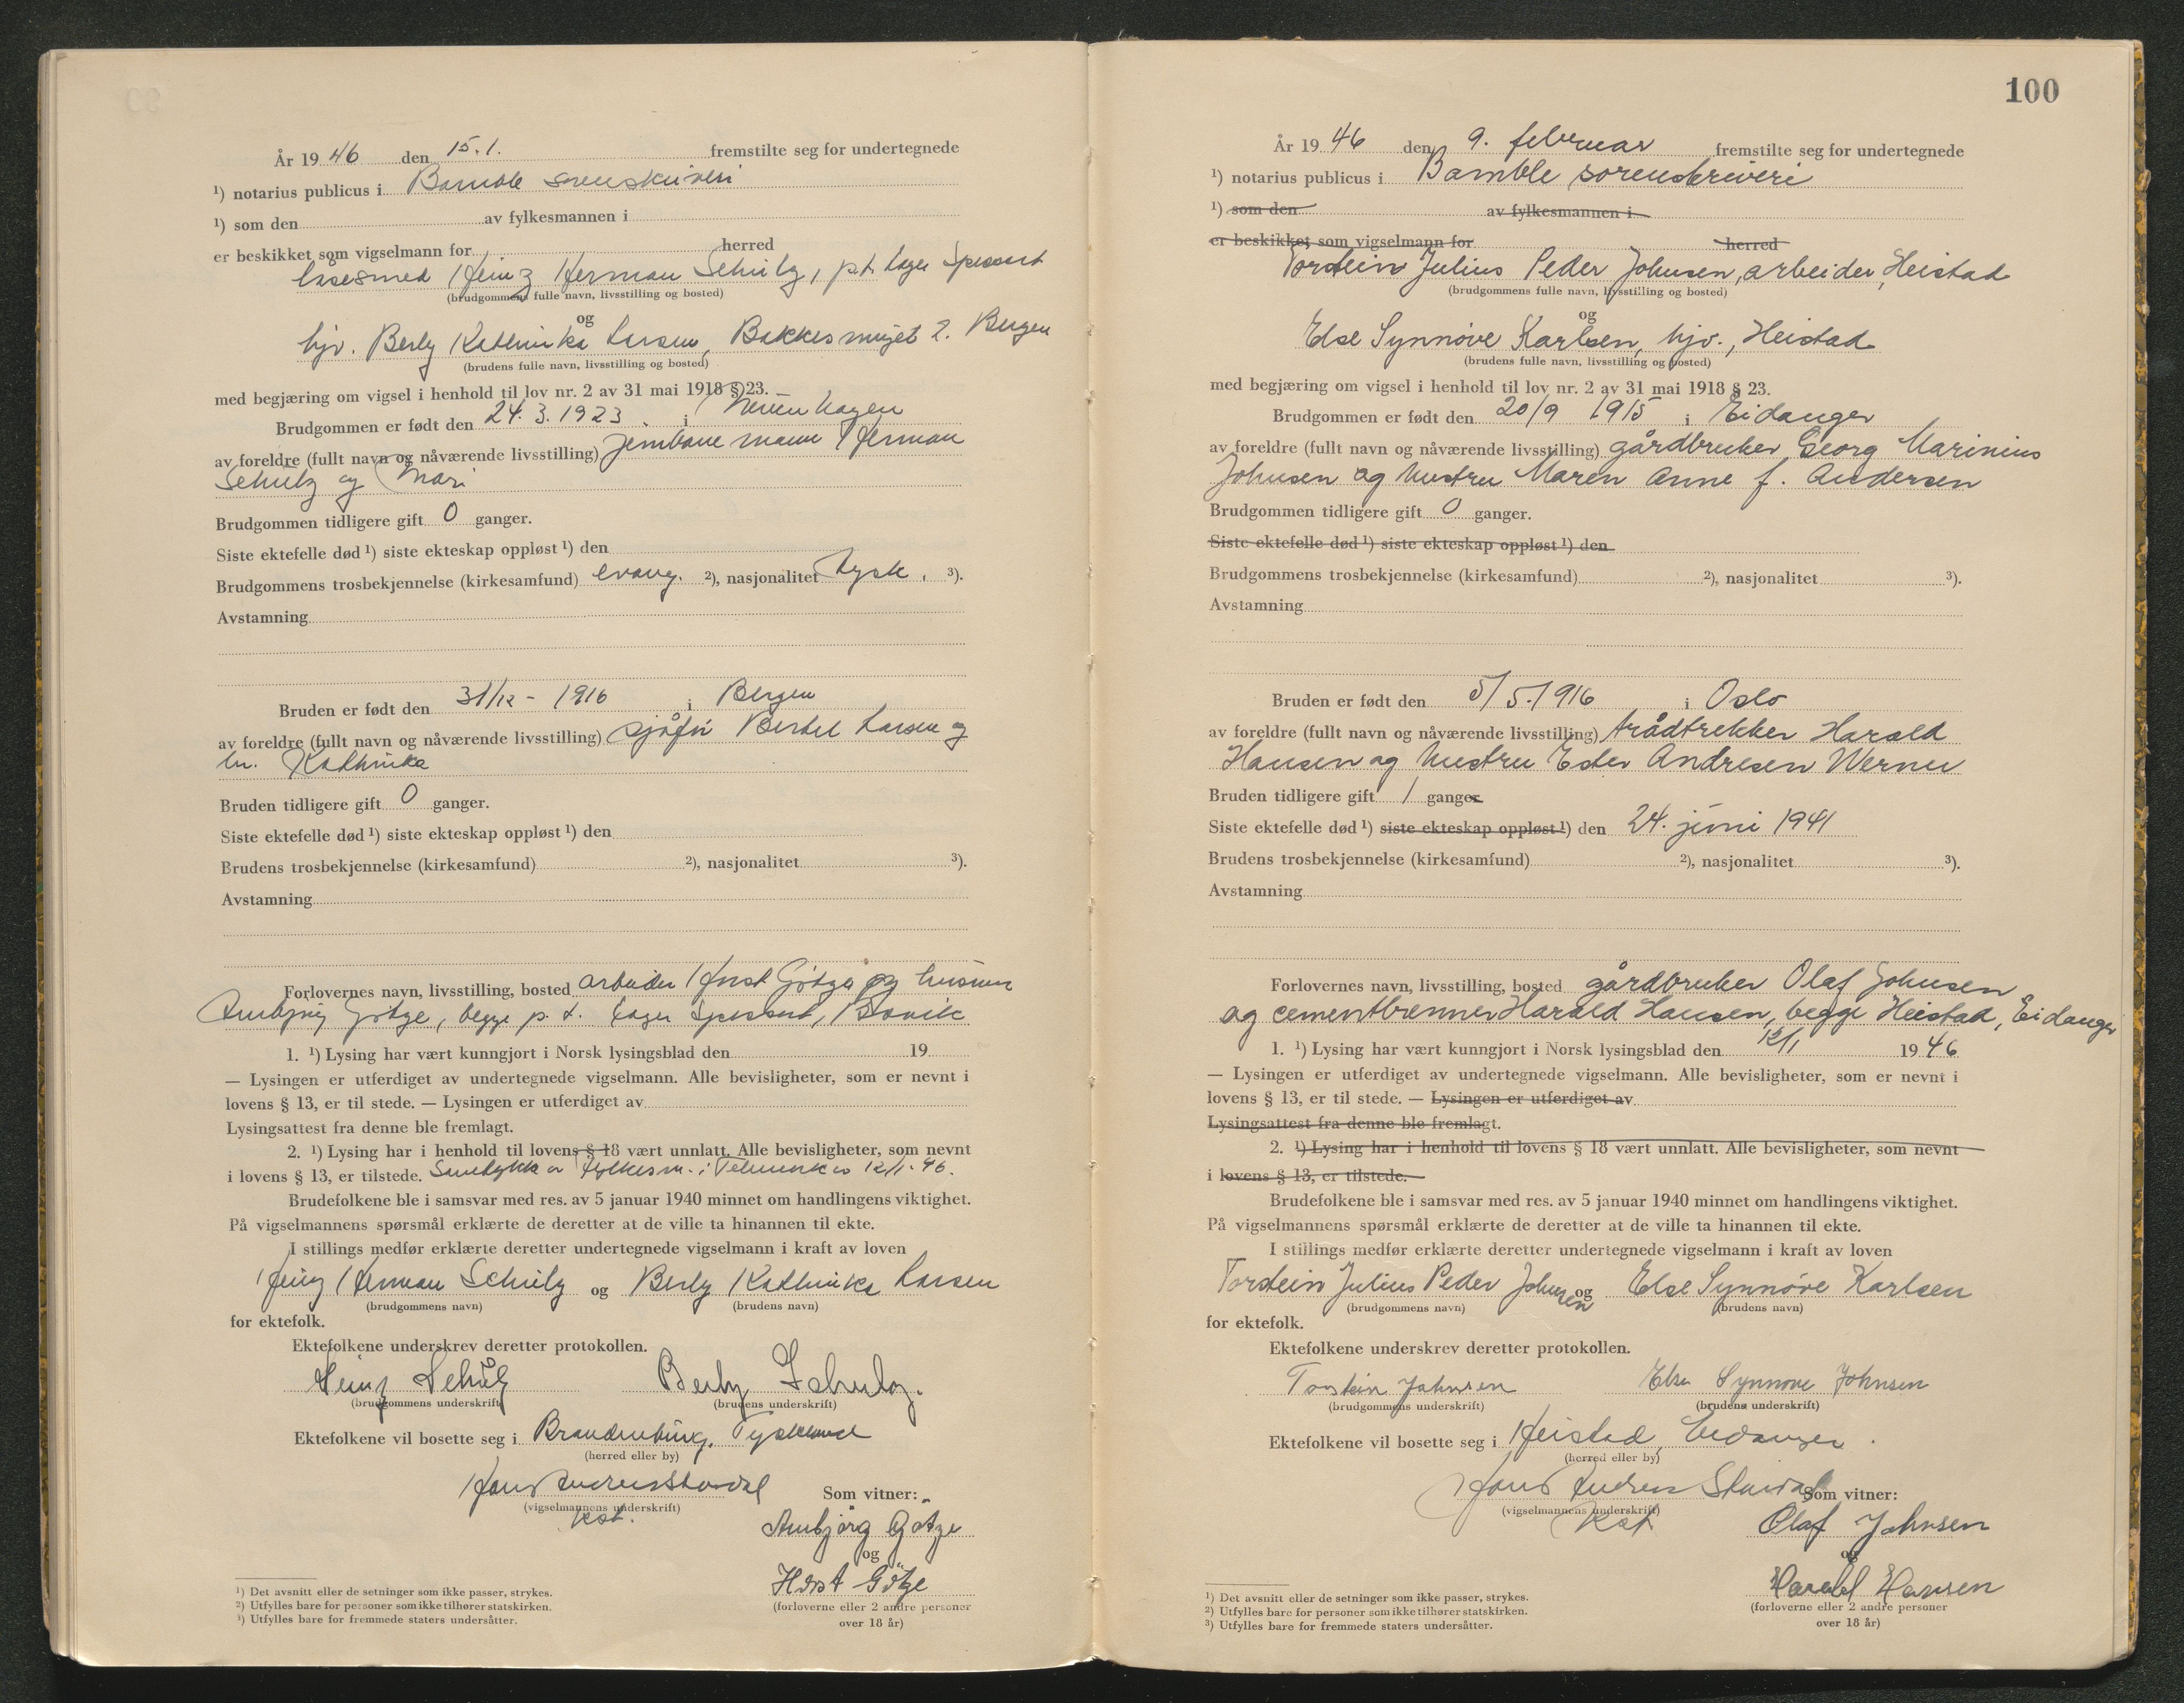 År 19 46 den 15.1. fremstilte seg for undertegnede
¹) notarius publicus i Bamble sorenskriveri
¹) som den av fylkesmannen i
er beskikket som vigselmann for herred
låsesmed Heinz Herman Schulz, p.t. Lager Spessart
(brudgommens fulle navn, livsstilling og bosted)
og
hjv. Berly Kathinka Larsen, Bakkesmuget 2. Bergen
(brudens fulle navn, livsstilling og bosted)
med begjæring om vigsel i henhold til lov nr. 2 av 31 mai 1918 § 23.
Brudgommen er født den 24.3.1923. i Neuenhagen
av foreldre (fullt navn og nåværende livsstilling) jernbanemann Herman
Schulz og Mari
Brudgommen tidligere gift 0 ganger.
Siste ektefelle død ¹) siste ekteskap oppløst ¹) den
Brudgommens trosbekjennelse (kirkesamfund) evang. ²), nasjonalitet tysk. ³).
Avstamning
Bruden er født den 31/12 - 1916 i Bergen
av foreldre (fullt navn og nåværende livsstilling) sjåfør Bertel Larsen og
h. Kathinka
Bruden tidligere gift 0 ganger.
Siste ektefelle død ¹) siste ekteskap oppløst ¹) den
Brudens trosbekjennelse (kirkesamfund) ²), nasjonalitet ³).
Avstamning
Forlovernes navn, livsstilling, bosted arbeider Horst Götze og hustru
Arnbjørg Götze, begge p.t. Lager Spessart,
1. ¹) Lysing har vært kunngjort i Norsk lysingsblad den 19
— Lysingen er utferdiget av undertegnede vigselmann. Alle bevisligheter, som er nevnt i
lovens § 13, er til stede. — Lysingen er utferdiget av
Lysingsattest fra denne ble fremlagt.
2. ¹) Lysing har i henhold til lovens § 18 vært unnlatt. Alle bevisligheter, som nevnt
i lovens § 13, er tilstede. Samtykke av fylkesm. i Telemark av 12/1.46.
Brudefolkene ble i samsvar med res. av 5 januar 1940 minnet om handlingens viktighet.
På vigselmannens spørsmål erklærte de deretter at de ville ta hinannen til ekte.
I stillings medfør erklærte deretter undertegnede vigselmann i kraft av loven
Heinz Herman Schulz og Berly Kathinka Larsen
(brudgommens navn) (brudens navn)
for ektefolk.
Ektefolkene underskrev deretter protokollen.
Heinz Schulz Berly Schulz.
(brudgommens underskrift) (brudens underskrift)
Ektefolkene vil bosette seg i Brandenburg, Tyskland
(herred eller by)
Hans Andreas Stavdal
(vigselmannens underskrift)
Kst.
Som vitner:
Arnbjörg Götze
og
Horst Götze
(forloverne eller 2 andre personer
over 18 år)
¹) Det avsnitt eller de setninger som ikke passer, strykes.
²) Utfylles bare for personer som ikke tilhører statskirken.
³) Utfylles bare for fremmede staters undersåtter.
100
År 19 46 den 9. februar fremstilte seg for undertegnede
¹) notarius publicus i Bamble sorenskriveri
¹) som den av fylkesmannen i
er beskikket som vigselmann for herred
Torstein Julius Peder Johnsen, arbeider, Heistad
(brudgommens fulle navn, livsstilling og bosted)
og
Else Synnøve Karlsen, hjv., Heistad
(brudens fulle navn, livsstilling og bosted)
med begjæring om vigsel i henhold til lov nr. 2 av 31 mai 1918 § 23.
Brudgommen er født den 20/9 1915 i Eidanger
av foreldre (fullt navn og nåværende livsstilling) gårdbruker Georg Marinius
Johnsen og hustru Maren Anne f. Andersen
Brudgommen tidligere gift 0 ganger.
Siste ektefelle død ¹) siste ekteskap oppløst ¹) den
Brudgommens trosbekjennelse (kirkesamfund) ²), nasjonalitet ³).
Avstamning
Bruden er født den 5/5.1916 i Oslo
av foreldre (fullt navn og nåværende livsstilling) trådtrekker Harald
Hansen og hustru Ester Andresen Werner
Bruden tidligere gift 1 ganger
Siste ektefelle død ¹) siste ekteskap oppløst ¹) den 24. juni 1941
Brudens trosbekjennelse (kirkesamfund) ²), nasjonalitet ³).
Avstamning
Forlovernes navn, livsstilling, bosted gårdbruker Olaf Johnsen
og cementbrenner Harald Hansen, begge Heistad, Eidanger
1. ¹) Lysing har vært kunngjort i Norsk lysingsblad den 12/1 19 46
— Lysingen er utferdiget av undertegnede vigselmann. Alle bevisligheter, som er nevnt i
lovens § 13, er til stede. — Lysingen er utferdiget av
Lysingsattest fra denne ble fremlagt.
2. ¹) Lysing har i henhold til lovens § 18 vært unnlatt. Alle bevisligheter, som nevnt
i lovens § 13, er tilstede.
Brudefolkene ble i samsvar med res. av 5 januar 1940 minnet om handlingens viktighet.
På vigselmannens spørsmål erklærte de deretter at de ville ta hinannen til ekte.
I stillings medfør erklærte deretter undertegnede vigselmann i kraft av loven
Torstein Julius Peder Johnsen og Else Synnøve Karlsen
(brudgommens navn) (brudens navn)
for ektefolk.
Ektefolkene underskrev deretter protokollen.
Torstein Johnsen Else Synnøve Johnsen
(brudgommens underskrift) (brudens underskrift)
Ektefolkene vil bosette seg i Heistad, Eidanger.
(herred eller by)
Hans Andreas Stavdal
(vigselmannens underskrift)
Kst.
Som vitner:
Olaf Johnsen
og
Harald Hansen
(forloverne eller 2 andre personer
over 18 år)
¹) Det avsnitt eller de setninger som ikke passer, strykes.
²) Utfylles bare for personer som ikke tilhører statskirken.
³) Utfylles bare for fremmede staters undersåtter.